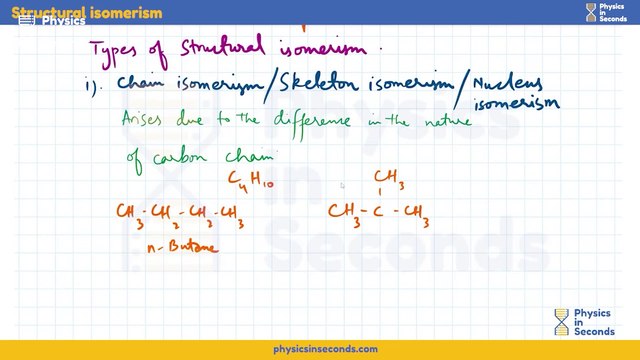 Structural isomerism
Physics
Physics
in
Seconds
Types of Structural isomerism.
i). Chain isomerism/Skeleton isomerism/Nucleus
isomerism
Arises due to the difference in the nature
of carbon chain
C4H10
CH3
CH3-CH2-CH2-CH3
CH3-C-CH3
n-Butane
Physics
in
Seconds
Physics
in
Seconds
physicsinseconds.com